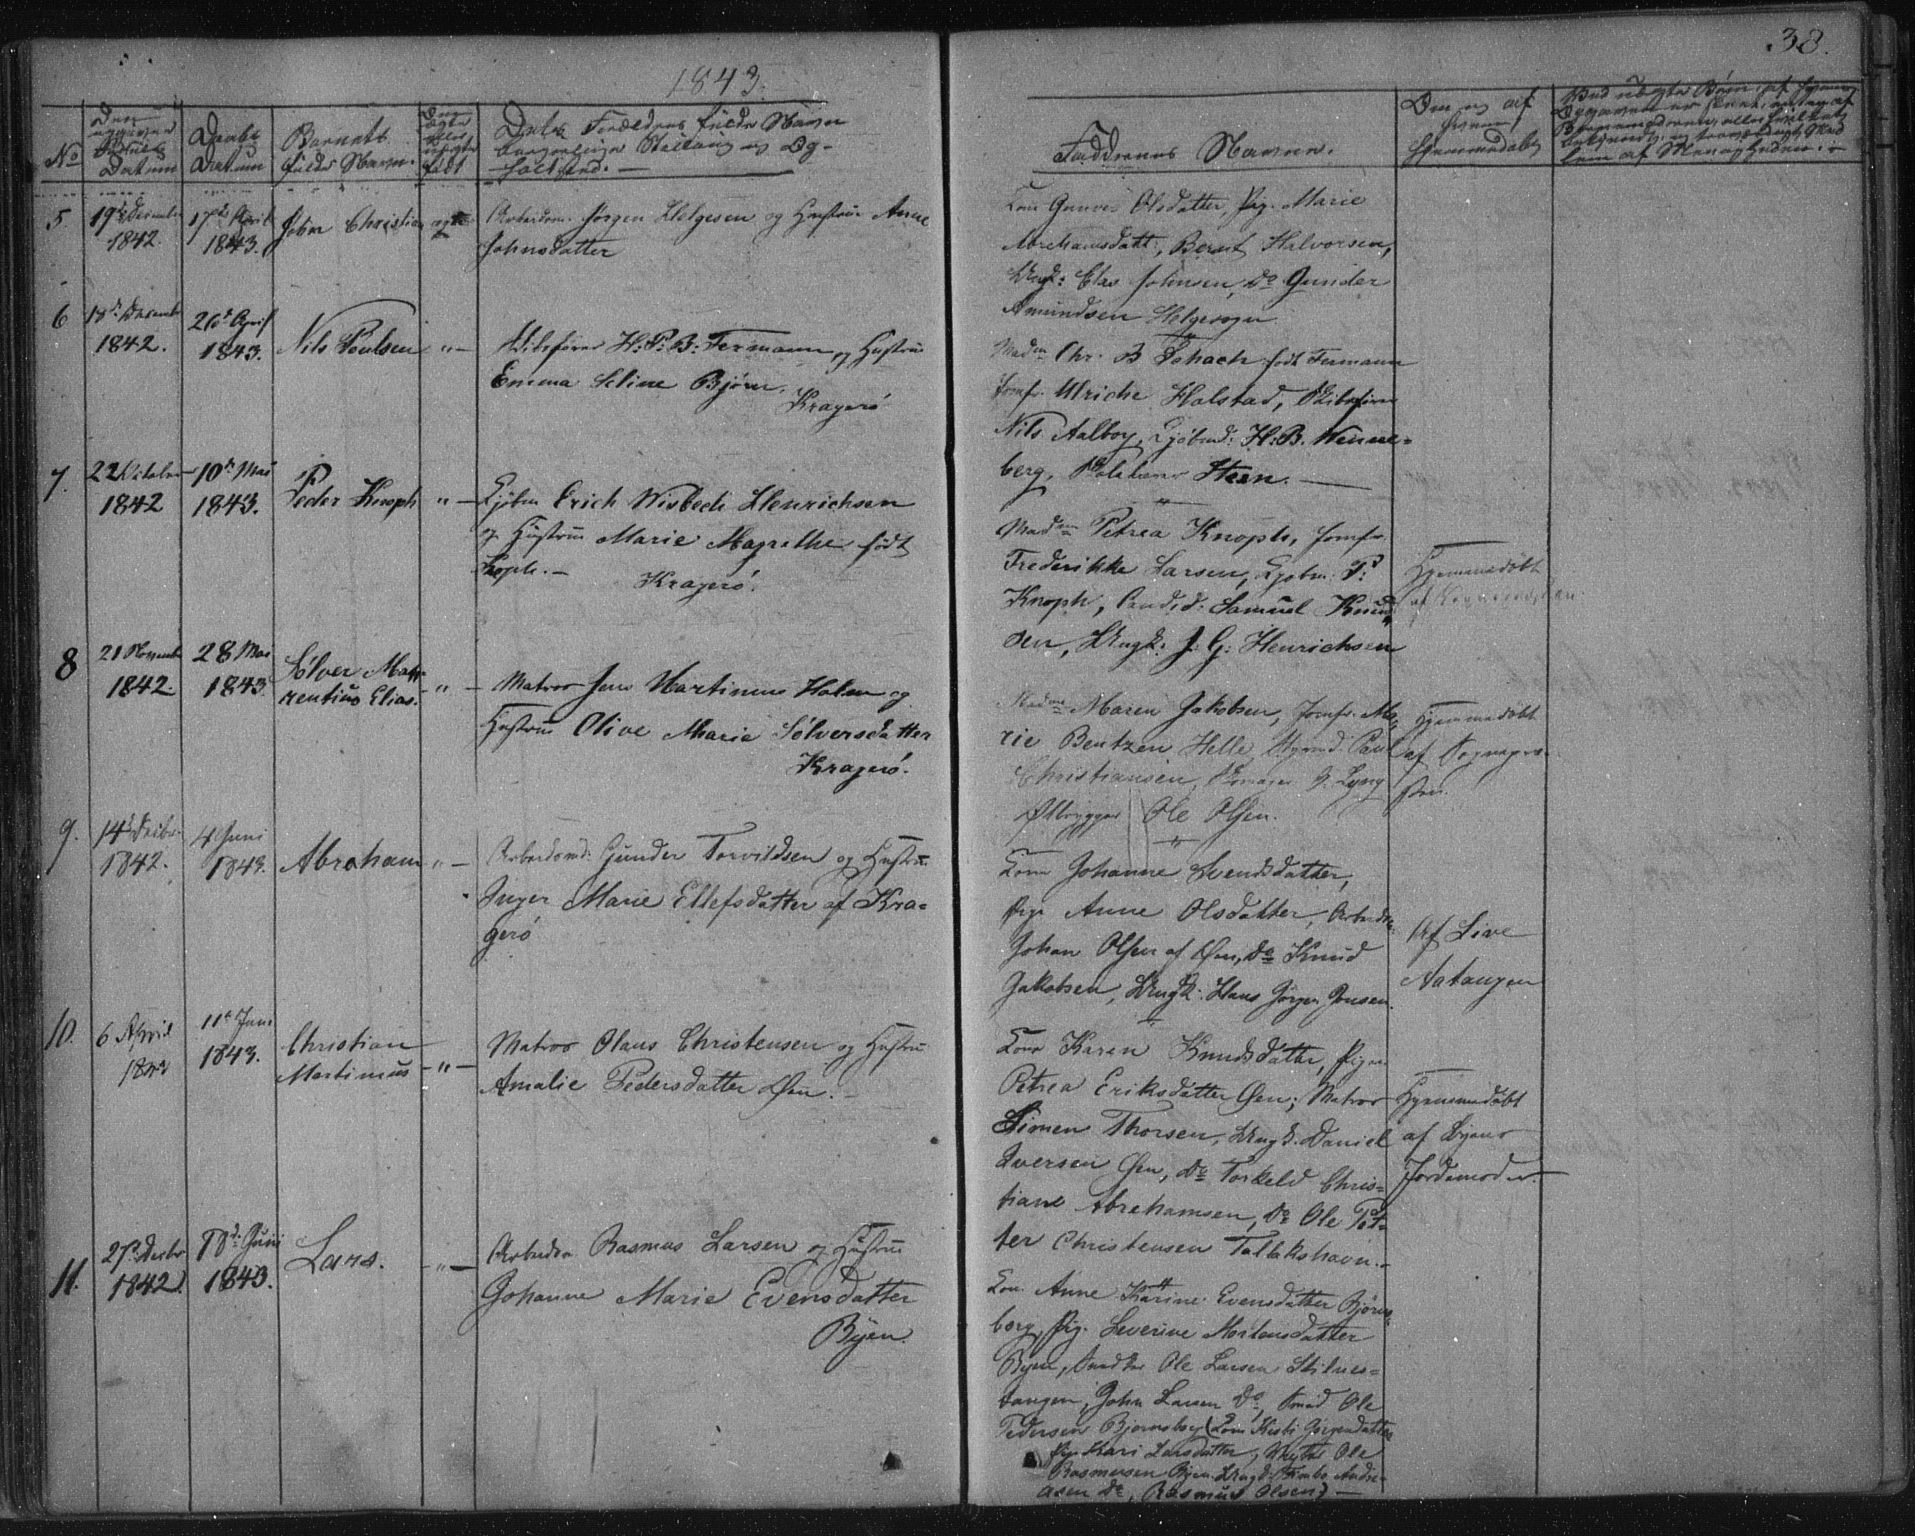 38.
1843.
No
Datum
Daabs Datum
Barnets fulde Navn.
født
Dets Forældres fulde Navn
borgerlige Stilling og
Faddernes Navne.
Om og af hvem hjemmedøbt
5
19de December 1842.
17de April 1843.
John Christian
ægte
Arbeidsm. Jørgen Helgesen og Hustrue Anne
Johnsdatter
Kone Gunvor Olsdatter, Pig. Marie
Abrehamsdatt:, Bernt Halvorsen,
Ungk: Elas Johnsen, Do Gunder
Amundsen Helgerøen
6
18de December 1842.
26de April 1843.
Nils Poulsen
"—
Skibsfører H: P: B: Fermann og Hustrue
Emma Seline Bjørn.
Kragerø
Madm Chr. B Schach født Fermann
Jomfr. Ulriche Halstad, Skibsfører
Nils Aalborg, Kjöbmd: H: B. Wenne=
berg, Steen. —
7.
22 October 1842
10de Mai 1843.
Peder Knoph
"—
Kjøbm Erich Wisbech Henrichsen
og Hustrue Marie Magrethe født
Knoph. —
Kragerø.
Madm Petrea Knoph, Jomfr.
Frederikke Larsen, Kjøbm. P:
Knoph, Candid: Samuel Knud
sen, Ungk: J: G: Henrichsen
Hjemmedøbt
8
21 November 1842.
28 Mai 1843.
Sølver Mau-
rentius Elias.
"—
Matros Jens Martinius Holm og
Hustrue Olive Marie Sølversdatter
Kragerø.
Madme Maren Jakobsen, Jomfr. Ma-
rie Bentzen Helle, Styrmd: Paul
Christiansen, Lyng
Ølbrygger Ole Olsen.
Hjemmedøbt
af Sognepræ-
sten.
9.
14de Decbr. 1842.
4 Juni 1843.
Abraham
"—
Arbeidsmd: Gunder Torvildsen og Hustrue
Inger Marie Ellefsdatter af Kra=
gerø
Kone Johanne Svendsdatter,
Pige Anne Olsdatter, Arbeidsm:
Johan Olsen af Øen, Do Knud
Jakobsen, Ungk: Hans Jørgen Jensen.
Af Live
Aatangen
10.
6 April 1843
11te Juni 1843.
Christian
Martinius
"—
Matros Olaus Christensen og Hustrue
Amalie Pedersdatter Øen.
Kone Karen Knudsdatter, Pigen
Petrea Eriksdatter Øen; Matros
Simen Thorsen, Ungk. Daniel
Iversen Øen, Do Torkeld Chris=
tiane Abrehamsen, Do Ole Pet=
ter Christensen Tallakshavn. —
Hjemmedøbt
af Byens
Jordemoder.
11.
27de Decbr 1842.
18de Juni 1843.
Lars.
"—
Arbeidsm Rasmus Larsen og Hustrue
Johanne Marie Evensdatter
Byen.
Kon. Anne Karine Evensdatter Bjørns-
borg, Pig. Severine Mortensdatter
Byen, Ole Larsen Stilnes=
tangen, John Larsen Do, Smed Ole
Pedersen Bjørnsborg (Kone Kisti Jørgensdatter
Pige Kari Larsdatter, Ole
Rasmussen Byen. Ungd: Andre-
asen Do, Rasmus Olsen) —